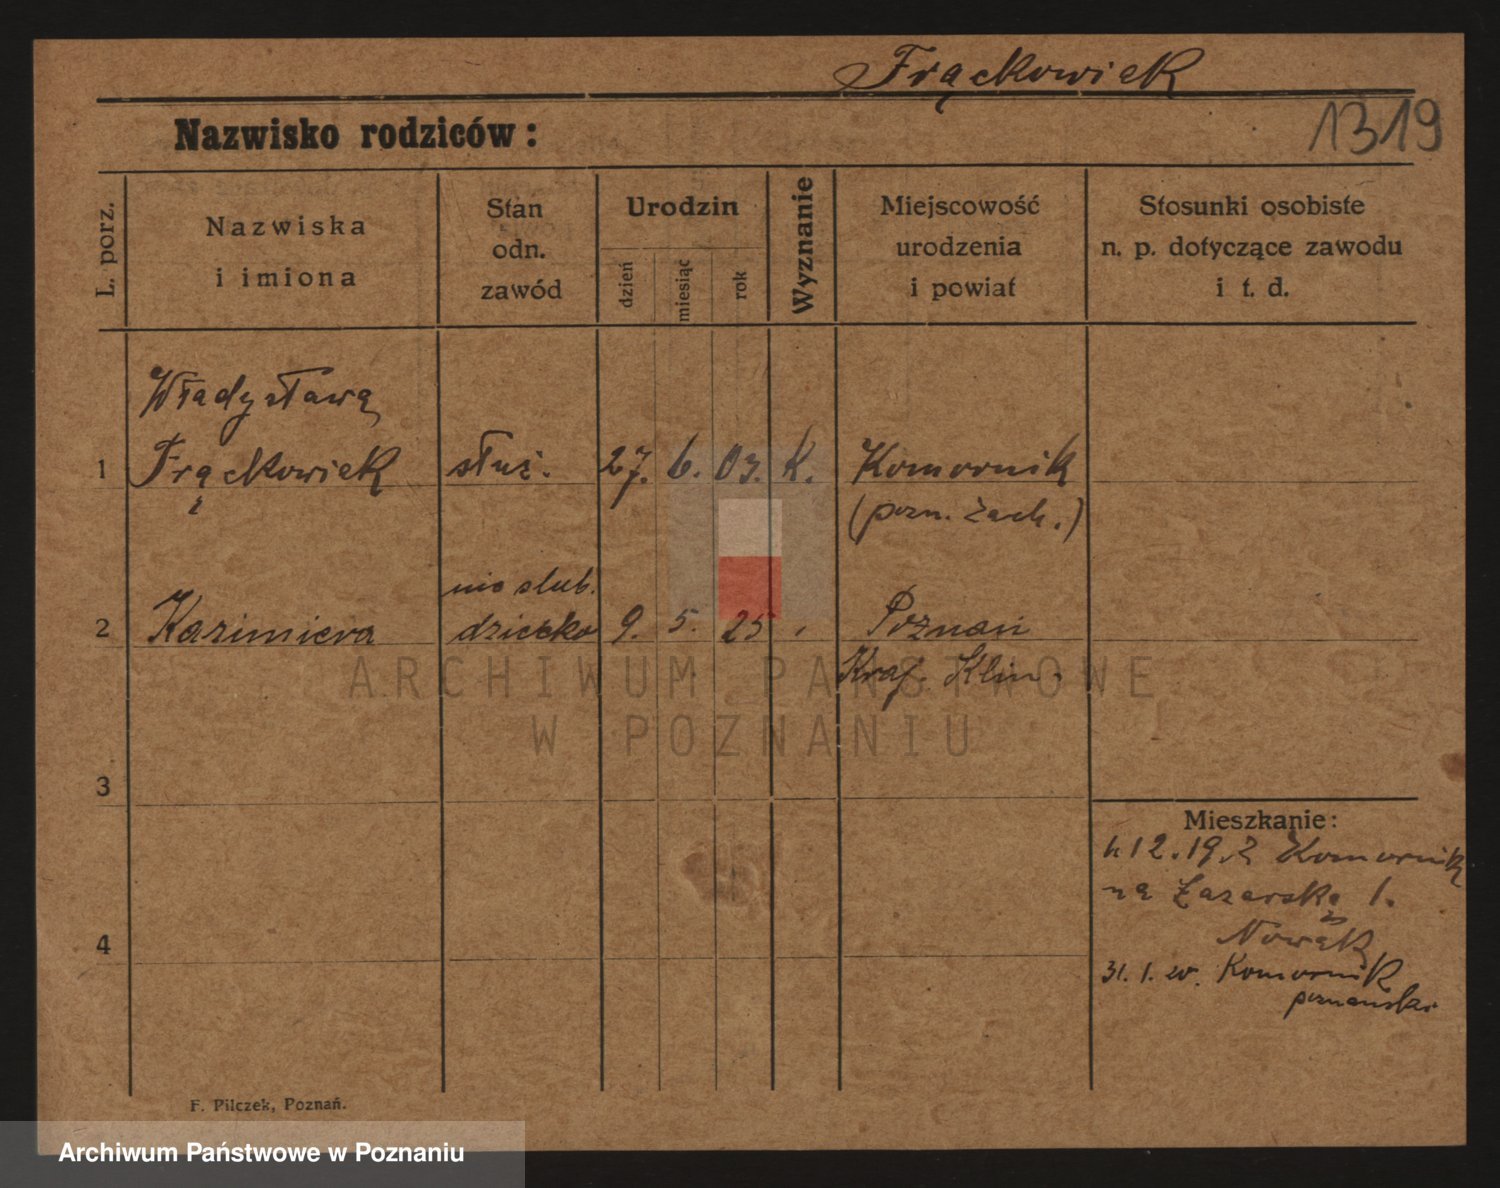 Frąckowiak
1319
Nazwisko rodziców:
L. porz.
Nazwiska
i imiona
Stan
odn.
zawód
Urodzin
dzień
miesiąc
rok
Wyznanie
Miejscowość
urodzenia
i powiat
Stosunki osobiste
n. p. dotyczące zawodu
i t. d.
Władysława
1 Frąckowiak służ. 27. 6. 03. K. Komornik
(pozn. zach.)
nie slub.
2 Kazimiera dziecko 9. 5. 25 Poznań
Kraj. Klin.
ARCHIWUM PAŃSTWOWE
W POZNANIU
3
Mieszkanie:
12. 19. Komornik
na Łazarska 1.
Nowak
4
31. 1. Komornik
poznański
F. Pilczek, Poznań.
Archiwum Państwowe w Poznaniu